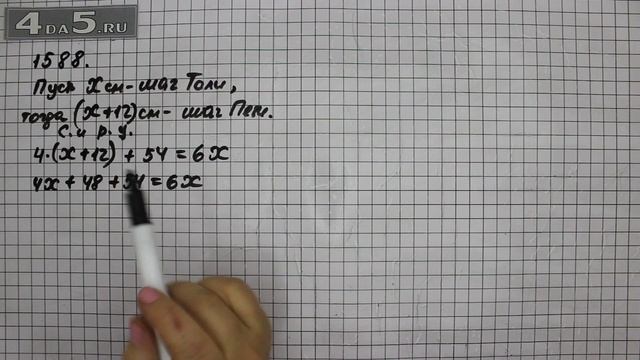 4DA5.RU
1588.
Пусть X см - шаг Толи,
тогда (x+12) см - шаг Пети.
С. и р. у.
4·(x+12) + 54 = 6x
4x + 48 + 54 = 6x